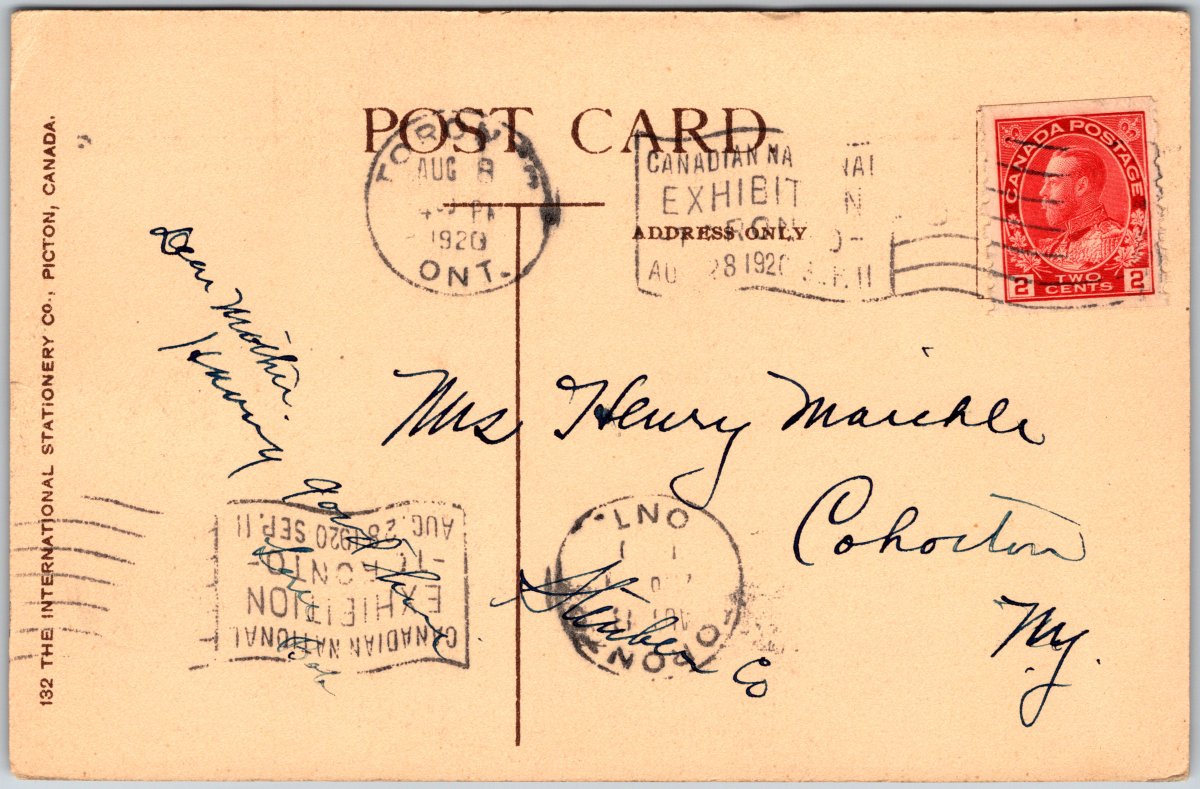 POST CARD
TORONTO
AUG 8
PM
1920
ONT.
CANADIAN NATIONAL
EXHIBITION
TORONTO
AUG. 28 1920 SEP. 11
ADDRESS ONLY
CANADA POSTAGE
2 TWO CENTS 2
132 THE INTERNATIONAL STATIONERY CO., PICTON, CANADA.
Dear Mother.
Having
good time
Love Bob
Mrs Henry Maichle
Cohocton
Steuben Co
NY.
CANADIAN NATIONAL
EXHIBITION
TORONTO
AUG. 28 1920 SEP. 11
TORONTO
ONT.